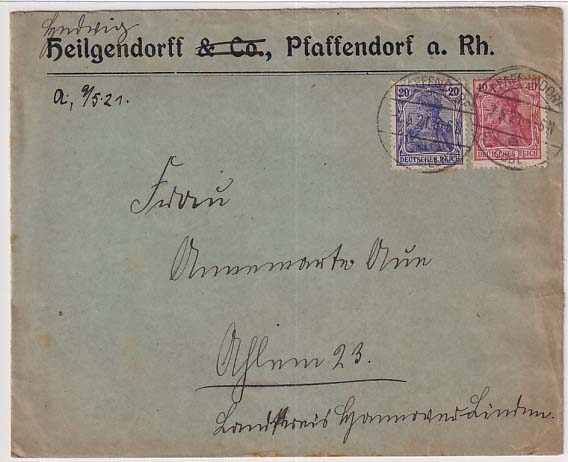 Hedwig
Heilgendorff & Co., Pfaffendorf a. Rh.
a, 9/5.21.
20 20
DEUTSCHES REICH
40 40
DEUTSCHES REICH
Frau
Annemarie Aue
Ahlem 23.
Landkreis Hannover Linden.